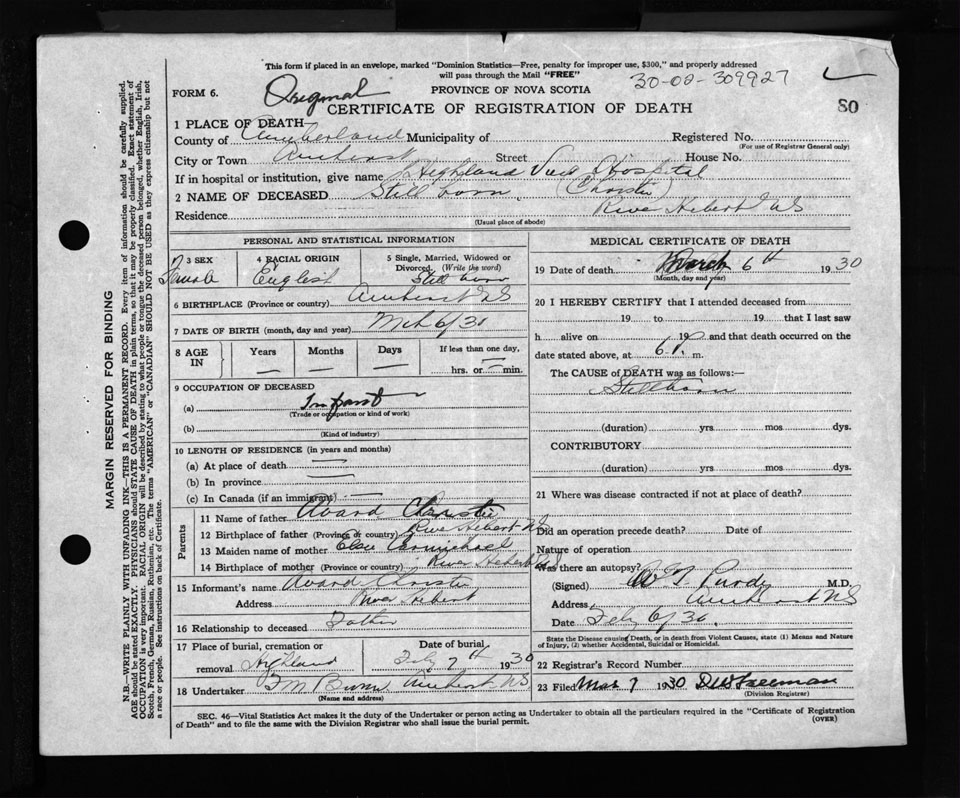 This form if placed in an envelope, marked "Dominion Statistics—Free, penalty for improper use, $300," and properly addressed
will pass through the Mail "FREE"
30-02-309927
FORM 6.
Original
PROVINCE OF NOVA SCOTIA
CERTIFICATE OF REGISTRATION OF DEATH
80
1 PLACE OF DEATH—
County of Cumberland Municipality of Registered No.
(For use of Registrar General only)
City or Town Amherst Street House No.
If in hospital or institution, give name Highland View Hospital
2 NAME OF DECEASED Still born (Christie)
Residence River Hebert NS
(Usual place of abode)
PERSONAL AND STATISTICAL INFORMATION
3 SEX 4 RACIAL ORIGIN 5 Single, Married, Widowed or
Divorced. (Write the word)
Female English Still born
6 BIRTHPLACE (Province or country) Amherst NS
7 DATE OF BIRTH (month, day and year) Mch 6/30
8 AGE IN Years Months Days If less than one day,
— — — hrs. or — min.
9 OCCUPATION OF DECEASED
(a) Infant
(Trade or occupation or kind of work)
(b)
(Kind of industry)
10 LENGTH OF RESIDENCE (in years and months)
(a) At place of death —
(b) In province —
(c) In Canada (if an immigrant) —
Parents
11 Name of father Avard Christie
12 Birthplace of father (Province or country) River Hebert NS
13 Maiden name of mother Elsie Carmichael
14 Birthplace of mother (Province or country) River Hebert NS
15 Informant's name Avard Christie
Address River Hebert
16 Relationship to deceased Father
17 Place of burial, cremation or Date of burial,
removal Highland Feby 7th 1930
18 Undertaker Amherst NS
(Name and address)
MEDICAL CERTIFICATE OF DEATH
19 Date of death March 6th 1930
(Month, day and year)
20 I HEREBY CERTIFY that I attended deceased from
19 to 19 that I last saw
h alive on 19 and that death occurred on the
date stated above, at 6 P. m.
The CAUSE of DEATH was as follows:—
Stillborn
(duration) yrs mos dys.
CONTRIBUTORY
(duration) yrs. mos. dys.
21 Where was disease contracted if not at place of death?
Did an operation precede death? Date of
Nature of operation
Was there an autopsy?
(Signed) Purdy M.D.
Address Amherst NS
Date Feby 6/30.
State the Disease causing Death, or in death from Violent Causes, state (1) Means and Nature
of Injury, (2) whether Accidental, Suicidal or Homicidal.
22 Registrar's Record Number
23 Filed Mar 7 1930 Freeman
(Division Registrar)
SEC. 46—Vital Statistics Act makes it the duty of the Undertaker or person acting as Undertaker to obtain all the particulars required in the "Certificate of Registration
of Death" and to file the same with the Division Registrar who shall issue the burial permit.
(OVER)
MARGIN RESERVED FOR BINDING
N.B.—WRITE PLAINLY WITH UNFADING INK—THIS IS A PERMANENT RECORD. Every item of information should be carefully supplied.
AGE should be stated EXACTLY. PHYSICIANS should STATE CAUSE OF DEATH in plain terms, so that it may be properly classified. Exact statement of
OCCUPATION is very important. RACIAL ORIGIN will be described by stating to what people or tongue the deceased person belonged, whether English, Irish,
Scotch, French, German, Russian, Ruthenian, etc. The terms "AMERICAN" or "CANADIAN" SHOULD NOT BE USED as they express citizenship but not
a race or people. See instructions on back of Certificate.